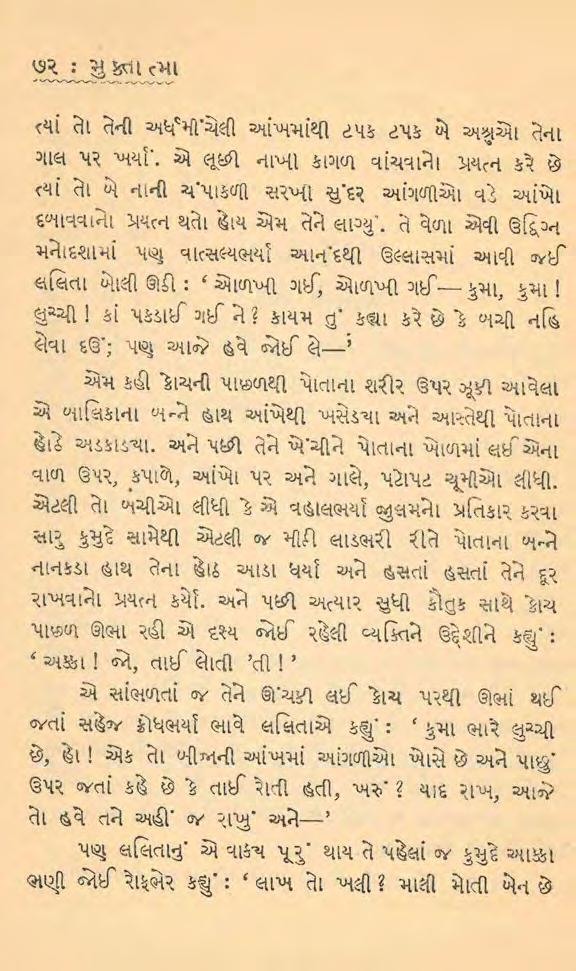 ૭૨ : મુક્તાત્મા
ત્યાં તો તેની અર્ધમીંચેલી આંખમાંથી ટપક ટપક બે અશ્રુઓ તેના
ગાલ પર ખર્યાં. એ લૂછી નાખી કાગળ વાંચવાનો પ્રયત્ન કરે છે
ત્યાં તો બે નાની ચંપાકળી સરખી સુંદર આંગળીઓ વડે આંખો
દબાવવાનો પ્રયત્ન થતો હોય એમ તેને લાગ્યું. તે વેળા એવી ઉદ્વિગ્ન
મનોદશામાં પણ વાત્સલ્યભર્યા આનંદથી ઉલ્લાસમાં આવી જઈ
લલિતા બોલી ઊઠી : ‘ ઓળખી ગઈ, ઓળખી ગઈ— કુમા, કુમા !
લુચ્ચી ! કાં પકડાઈ ગઈ ને ? કાયમ તું કહ્યા કરે છે કે બચી નહિ
લેવા દઉં; પણ આજે હવે જોઈ લે—’
એમ કહી કોચની પાછળથી પોતાના શરીર ઉપર ઝૂકી આવેલા
એ બાલિકાના બન્ને હાથ આંખેથી ખસેડ્યા અને આસ્તેથી પોતાના
હોઠે અડકાડ્યા. અને પછી તેને ખેંચીને પોતાના ખોળમાં લઈ એના
વાળ ઉપર, કપાળે, આંખો પર અને ગાલે, પટોપટ ચૂમીઓ લીધી.
એટલી તો બચીઓ લીધી કે એ વહાલભર્યા જુલમનો પ્રતિકાર કરવા
સારુ કુમુદે સામેથી એટલી જ મીઠી લાડભરી રીતે પોતાના બન્ને
નાનકડા હાથ તેના હોઠ આડા ધર્યા અને હસતાં હસતાં તેને દૂર
રાખવાનો પ્રયત્ન કર્યો. અને પછી અત્યાર સુધી કૌતુક સાથે કોચ
પાછળ ઊભા રહી એ દૃશ્ય જોઈ રહેલી વ્યક્તિને ઉદ્દેશીને કહ્યું :
‘ અક્કા ! જો, તાઈ લોતી ’તી ! ’
એ સાંભળતાં જ તેને ઊંચકી લઈ કોચ પરથી ઊભાં થઈ
જતાં સહેજ ક્રોધભર્યા ભાવે લલિતાએ કહ્યું : ‘ કુમા ભારે લુચ્ચી
છે, હો ! એક તો બીજાની આંખમાં આંગળીઓ ખોસે છે અને પાછું
ઉપર જતાં કહે છે કે તાઈ રોતી હતી, ખરું ? યાદ રાખ, આજે
તો હવે તને અહીં જ રાખું અને—’
પણ લલિતાનું એ વાક્ય પૂરું થાય તે પહેલાં જ કુમુદે આક્કા
ભણી જોઈ રોફભેર કહ્યું : ‘ લાખ તો ખલી ? માલી મોતી બેન છે